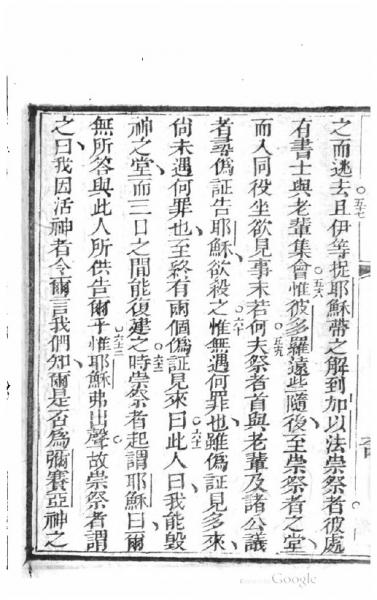 之而逃去且伊等捉耶穌帶之解到加以法崇祭者彼處
五七
有書士與老輩集會惟彼多羅遠些隨後至崇祭者之堂
五八
而入同役坐欲見事末若何夫祭者首與老輩及諸公議
五九
者尋僞証告耶穌欲殺之惟無遇何罪也雖僞証見多來
六十
尙未遇何罪也至終有兩個僞証見來曰此人曰我能毀
六一
神之堂而三日之間能復建之時崇祭者起謂耶穌曰爾
六二
無所答與此人所供告爾乎惟耶穌弗出聲故崇祭者謂
六三
之曰我因活神者令爾言我們知爾是否爲彌賽亞神之
Google